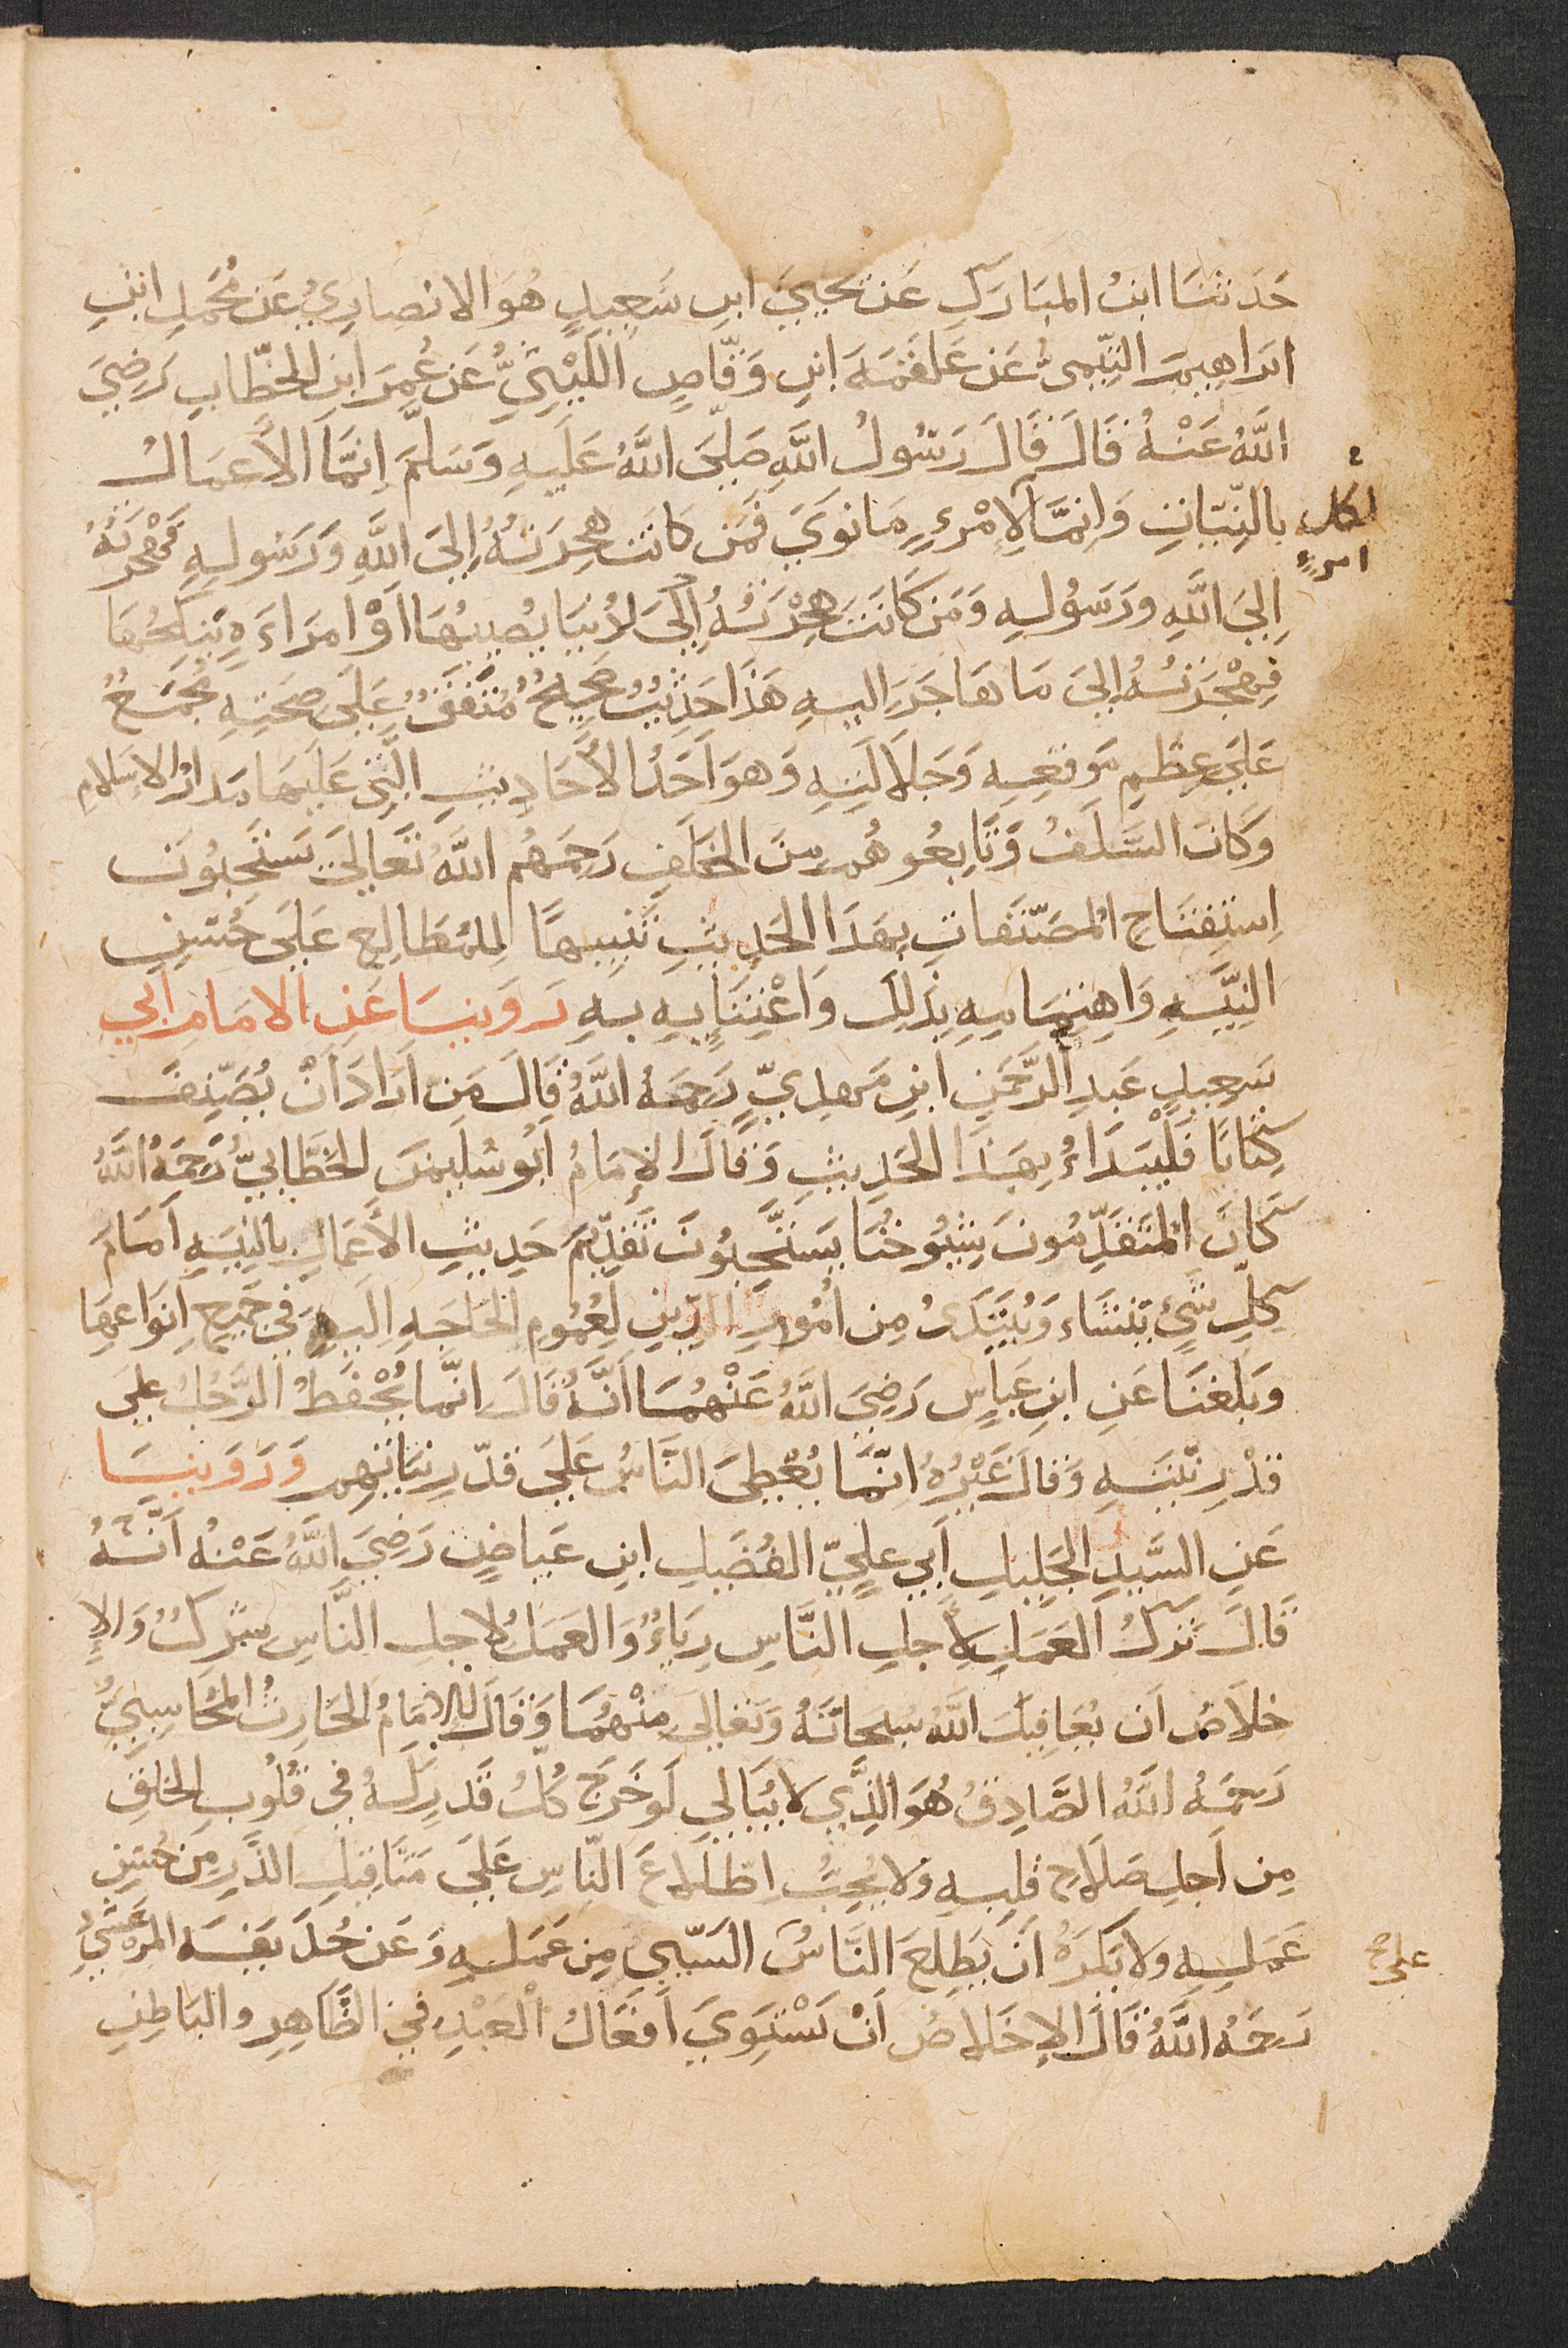 حَدَثنَا ابنُ المبَارَكِ عَن يحييَ ابنِ سَعِيدٍ هُوَ الانصارِيُ عَن مُحَمدِ ابنِ
ابرَاهِيمَ التيّميُّ عَن عَلقَمَةَ ابنِ وَقّاصٍ اللَيْثيُّ عَن عُمِرَ ابنِ الخطّابِ رَضِيَ
اللَّهُ عَنْهُ قَالَ قَالَ رَسُولُ اللَّهِ صَلّىَ اللَّهُ عَلَيهِ وَسَلمَّ إنمَّاَ الأَعمَالُ
لكل
امرءٍ
بالنِيّاتِ وَانِمَّا لاِمْرءٍ مَانَوَيَ فَمَن كَانَت هِجِرَتهُ إِليَ اللَّهِ وَرَسُولهِ فَهْجرَتهُ
اِليَ اللَّهِ ورَسَوُلهِ وَمَن كَانَتَ هِجْرَتُهُ اِلَىَ لدُنيَا يُصِيبُهَا اَوْ امرَاءَةٍ يَنكِحُهَا
فَهِجْرَتُهُ إليَ مَا هَاجَرَ اليهِ هَذَا حَدِيثٌ صَحِيحٌ مُتَفَقٌ عَلَيَ صِحَتِهِ مُجمَعٌ
عَليَ عِظَمِ مَوقعِهِ وَجَلاَلَتِهِ وَهوَ اَحَدُ الأَحَادِيثِ الَّتِي عَلَيهَا مَدَارُ الاِسلامِ
وَكَانَ السَّلَفُ وَتَابِعُوهُم مِنَ الخلَفِ رَحِمَهُم اللَّهُ تَعَاليَ يَستَحِبوُنَ
اِستِفتَاح المُصَنّفاتِ بِهَذَا الحَدِيثِ تَنبِيهًا لِلمُطَالِعِ عَليَ حُسنِ
النِيَّهِ وَاهتِمَامِهِ بِذَلِكَ وَاعْتِنَايِهِ بهِ رَوَينَا عَنِ الامَامِ أبي
سَعِيدٍ عَبدِ الرَّحمَنِ ابنِ مَهدِيٍّ رَحِمَهُ اللَّهُ قَالَ مَن اَرَادَ اَنْ يُصَنِّفَ
كِتَابًا فَلْيَبدَاءْ بِهَذَا الحَدِيثِ وَقَالَ الإمَامُ ابُو سُلَيمَنَ الخَطَّابيُّ رَحَمَهُ اللَّهُ
كَانَ المتَقَدِّمُونَ شِيُوخُنَا يَستَحِّبوُنَ تَقدِيمَ حَدِيثِ الأَعمَالِ بالنِيَهِ اَمَامَ
كلِّ شَيٍ يُنشَاء وَيُبتَدَئُ مِن اُمُورِ الدِّينِ لِعُمُومِ الحَاجَهِ اليهِ في جَميعِ اَنوَاعِهَا
وَبَلغَنَا عَنِ ابنِ عَبَاسٍ رَضِيَ اللَّهُ عَنْهُمَا انَّهُ قَالَ انمّا يُحْفَظُ الرَّجُلُ عليَ
قَدْرِ نِيَتهِ وَقالَ غَيْرُهُ انِمَّا يُعْطِىَ النَّاسُ عَليَ قَدّرِ نيّاتِهِم وَرَوَينَا
عَنِ السَّيدِ الجَلِيلِ اَبي عَليٍّ الفُضَيلِ ابنِ عَيَاضٍ رَضِيَ اللَّهُ عَنْهُ اَنَّهُ
قَالَ تَركُ العَمَلِ لاَجلِ النَّاسِ رِيَاءٌ وَالعمَلُ لاجلِ النَّاسِ شِركٌ وَالإِ
خلاَصُ اَن يُعَافِيكَ اللَّهُ سُبحَانَهُ وَتعَاليَ مِنْهُمَا وَقَالَ الامَامُ الحَارِثُ المُحَاسِبيُّ
رَحِمَهُ اللَّهُ الصَّادِقُ هُوَ الَّذِي لا يُبَالِي لَو خَرَجَ كُلُّ قَدرٍ لَهُ في قُلُوبِ الخَلقِ
مِن اَجلِ صَلاَحِ قَلبهِ وَلا يُحِبُّ اطلاَعَ النَّاسِ عَليَ مَثَاقِيلِ الذَّرِّ مِن حُسنِ
عَمَلِهِ ولا يَكرَهُ اَن يَطّلِعَ النَّاسُ السَّيّيِ مِن عَملهِ وَعَن حُذَيفَهَ المرعَشيُّ
على صح
رَحمَهُ اللَّهُ قَالَ الإخلاصُ اَنْ تَسْتَوِيَ اَفعَالُ الْعَبْدِ في الظَّاهِرِ والبَاطِنِ